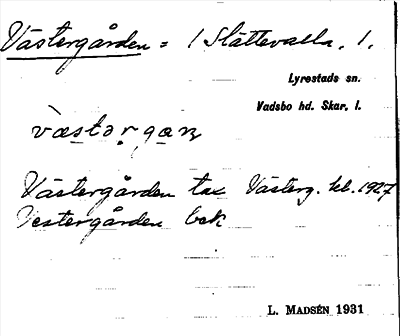 Västergården = 1 Slättevalla, 1.
Lyrestads sn.
Vadsbo hd. Skar. l.
Västergården tax Västerg. kl. 1927
Vestergården bek
L. MADSÉN 1931